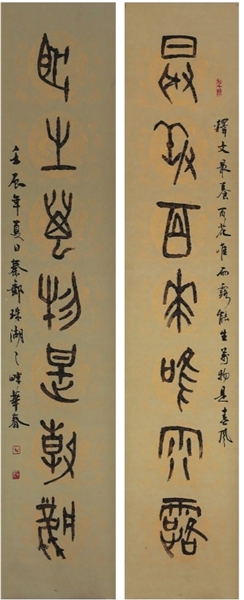 釋文最養百花唯雨露能生萬物是春風
最養百花唯雨露
能生萬物是春風
壬辰年夏日秦郵珠湖之畔華春